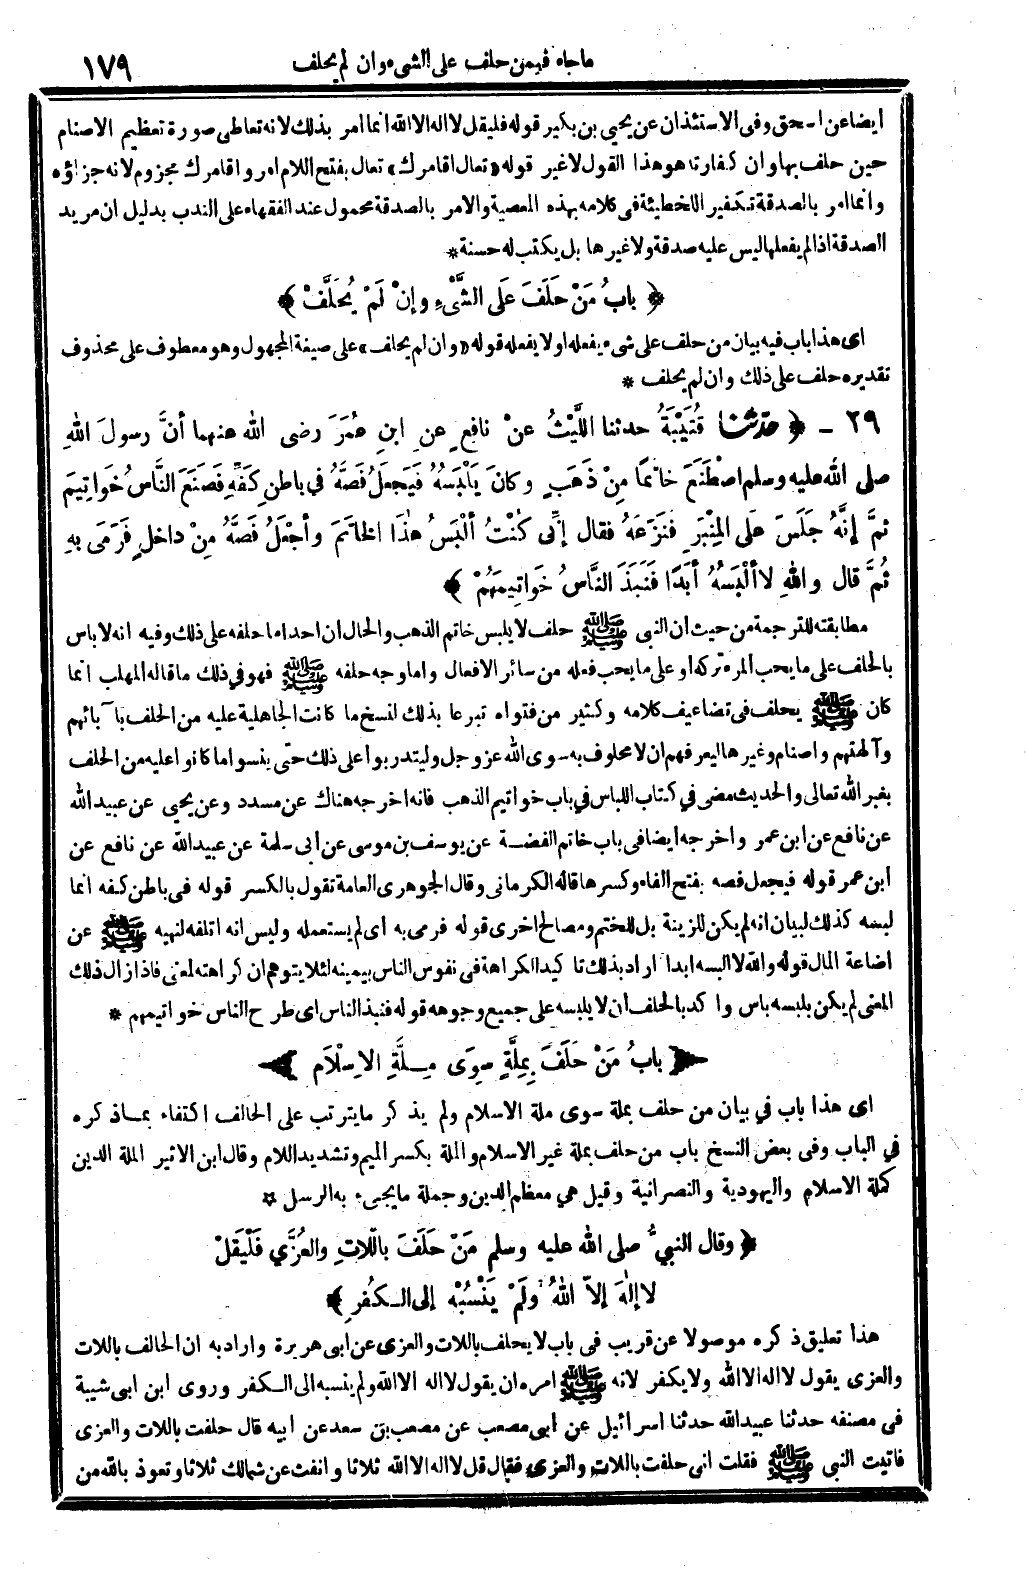 ما جاء فيمن حلف على الشيء وان لم يحلف ١٧٩
ايضا عن اسحق وفى الاستئذان عن يحيى بن بكير قوله فليقل لا اله الا الله انما امر بذلك لانه تعاطى صورة تعظيم الاصنام
حين حلف بها وان كفارتها هو هذا القول لا غير قوله «تعال اقامرك» تعال بفتح اللام امر واقامرك مجزوم لانه جزاؤه
وانما امر بالصدقة تكفير اللخطيئة فى كلامه بهذه المعصية والامر بالصدقة محمول عند الفقهاء على الندب بدليل ان مريد
الصدقة اذا لم يفعلها ليس عليه صدقة ولا غيرها بل يكتب له حسنة *
﴿ بابُ مَنْ حَلَفَ عَلَى الشَّىْءِ وإِنْ لَمْ يُحَلَّفْ ﴾
اى هذا باب فيه بيان من حلف على شىء يفعله او لا يفعله قوله «وان لم يحلف» على صيغة المجهول وهو معطوف على محذوف
تقديره حلف على ذلك وان لم يحلف *
٢٩ ـ ﴿ حدثنا قُتَيْبَةُ حدثنا اللَّيْثُ عنْ نافِعٍ عنِ ابنِ عُمَرَ رضى الله عنهما أنَّ رسولَ اللهِ
صلى الله عليه وسلم اصْطَنَعَ خاتَمًا مِنْ ذَهَبٍ وكانَ يَلْبَسُهُ فَيَجعَلُ فَصَّهُ في باطنِ كَفِّهِ فَصَنَعَ النَّاسُ خَوَاتِيمَ
ثمَّ إنَّهُ جَلَسَ عَلَى المِنْبَرِ فَنَزَعَهُ فقال إنِّى كُنْتُ ألْبَسُ هٰذَا الخاتَمَ وأجْعَلُ فَصَّهُ مِنْ داخلٍ فَرَمَى بِهِ
ثُمَّ قال واللهِ لا ألْبَسُهُ أبَدًا فَنَبَذَ النَّاسُ خَوَاتِيمَهُمْ ﴾
مطابقته للترجمة من حيث ان النبى ﷺ حلف لا يلبس خاتم الذهب والحال ان احدا ما حلفه على ذلك وفيه انه لا باس
بالحلف على ما يحب المرء تركه او على ما يحب فعله من سائر الافعال واما وجه حلفه ﷺ فهو في ذلك ما قاله المهلب انما
كان ﷺ يحلف فى تضاعيف كلامه وكثير من فتواه تبرعا بذلك لنسخ ما كانت الجاهلية عليه من الحلف بآبائهم
وآلهتهم واصنام وغيرها ليعرفهم ان لا محلوف به سوى الله عز وجل وليتدربوا على ذلك حتى ينسوا ما كانوا عليه من الحلف
بغير الله تعالى والحديث مضى في كتاب اللباس في باب خواتيم الذهب فانه اخرجه هناك عن مسدد وعن يحيى عن عبيد الله
عن نافع عن ابن عمر واخرجه ايضا فى باب خاتم الفضة عن يوسف بن موسى عن ابى سلمة عن عبيد الله عن نافع عن
ابن عمر قوله فيجعل فصه بفتح الفاء وكسرها قاله الكرمانى وقال الجوهرى العامة تقول بالكسر قوله فى باطن كفه انما
لبسه كذلك لبيان انه لم يكن للزينة بل للختم ومصالح اخرى قوله فرمى به اى لم يستعمله وليس انه اتلفه لنهيه ﷺ عن
اضاعة المال قوله والله لا البسه ابدا اراد بذلك تاكيد الكراهة فى نفوس الناس بيمينه لئلا يتوهم ان كراهته لمعنى فاذا زال ذلك
المعنى لم يكن بلبسه باس واكد بالحلف ان لا يلبسه على جميع وجوهه قوله فنبذ الناس اى طرح الناس خواتيمهم *
﴿ بابُ مَنْ حَلَفَ بِمِلَّةٍ سِوَى مِلَّةِ الاِسْلَامِ ﴾
اى هذا باب في بيان من حلف بملة سوى ملة الاسلام ولم يذكر ما يترتب على الحالف اكتفاء بما ذكره
في الباب وفى بعض النسخ باب من حلف بملة غير الاسلام والملة بكسر الميم وتشديد اللام وقال ابن الاثير الملة الدين
كملة الاسلام واليهودية والنصرانية وقيل هي معظم الدين وجملة ما يجىء به الرسل *
﴿ وقال النبيُّ صلى الله عليه وسلم مَنْ حَلَفَ باللَّاتِ والعُزَّي فَلْيَقلْ
لا إلٰهَ إلاّ اللهُ ولَمْ يَنْسُبْهُ إلى الكُفرِ ﴾
هذا تعليق ذكره موصولا عن قريب فى باب لا يحلف باللات والعزى عن ابى هريرة واراد به ان الحالف باللات
والعزى يقول لا اله الا الله ولا يكفر لانه ﷺ امره ان يقول لا اله الا الله ولم ينسبه الى الكفر وروى ابن ابى شيبة
فى مصنفه حدثنا عبيد الله حدثنا اسرائيل عن ابى مصعب عن مصعب بن سعد عن ابيه قال حلفت باللات والعزى
فاتيت النبى ﷺ فقلت انى حلفت باللات والعزى فقال قل لا اله الا الله ثلاثا وانفث عن شمالك ثلاثا وتعوذ بالله من